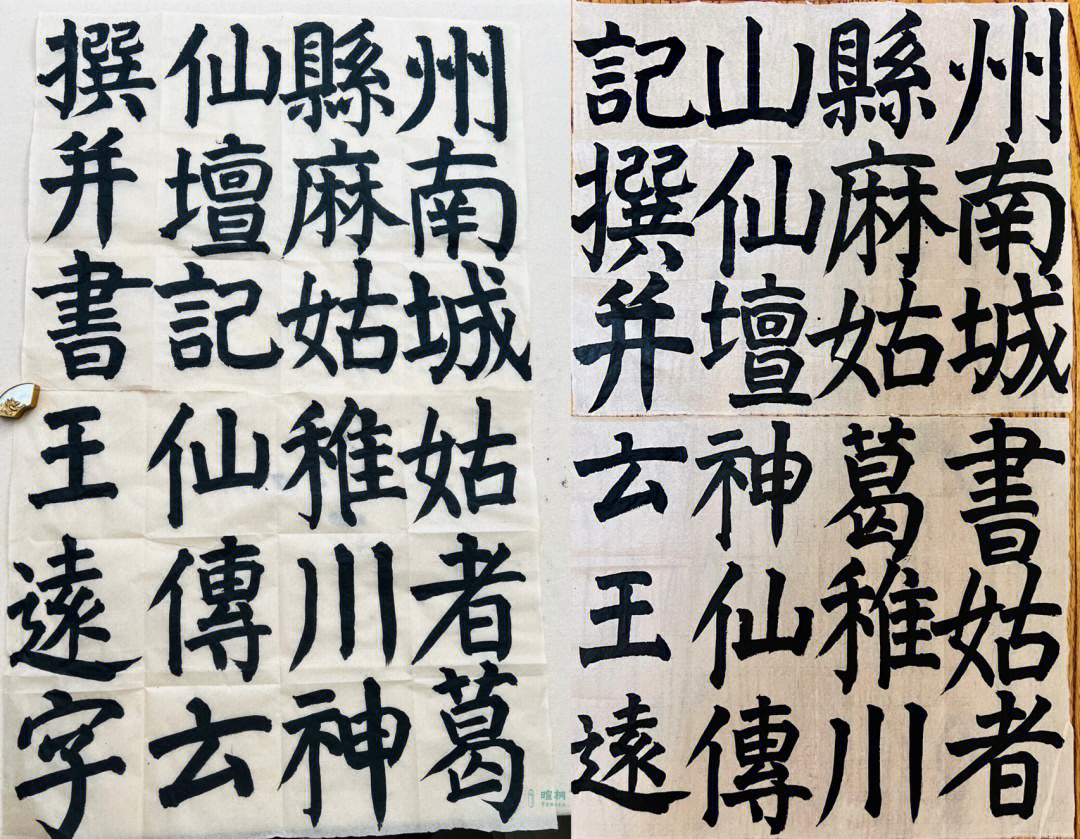 州南城
縣麻姑
仙壇記
撰并書
姑者葛
稚川神
仙傳云
王遠字
暄桐
州南城
縣麻姑
山仙壇
記撰并
書姑者
葛稚川
神仙傳
云王遠